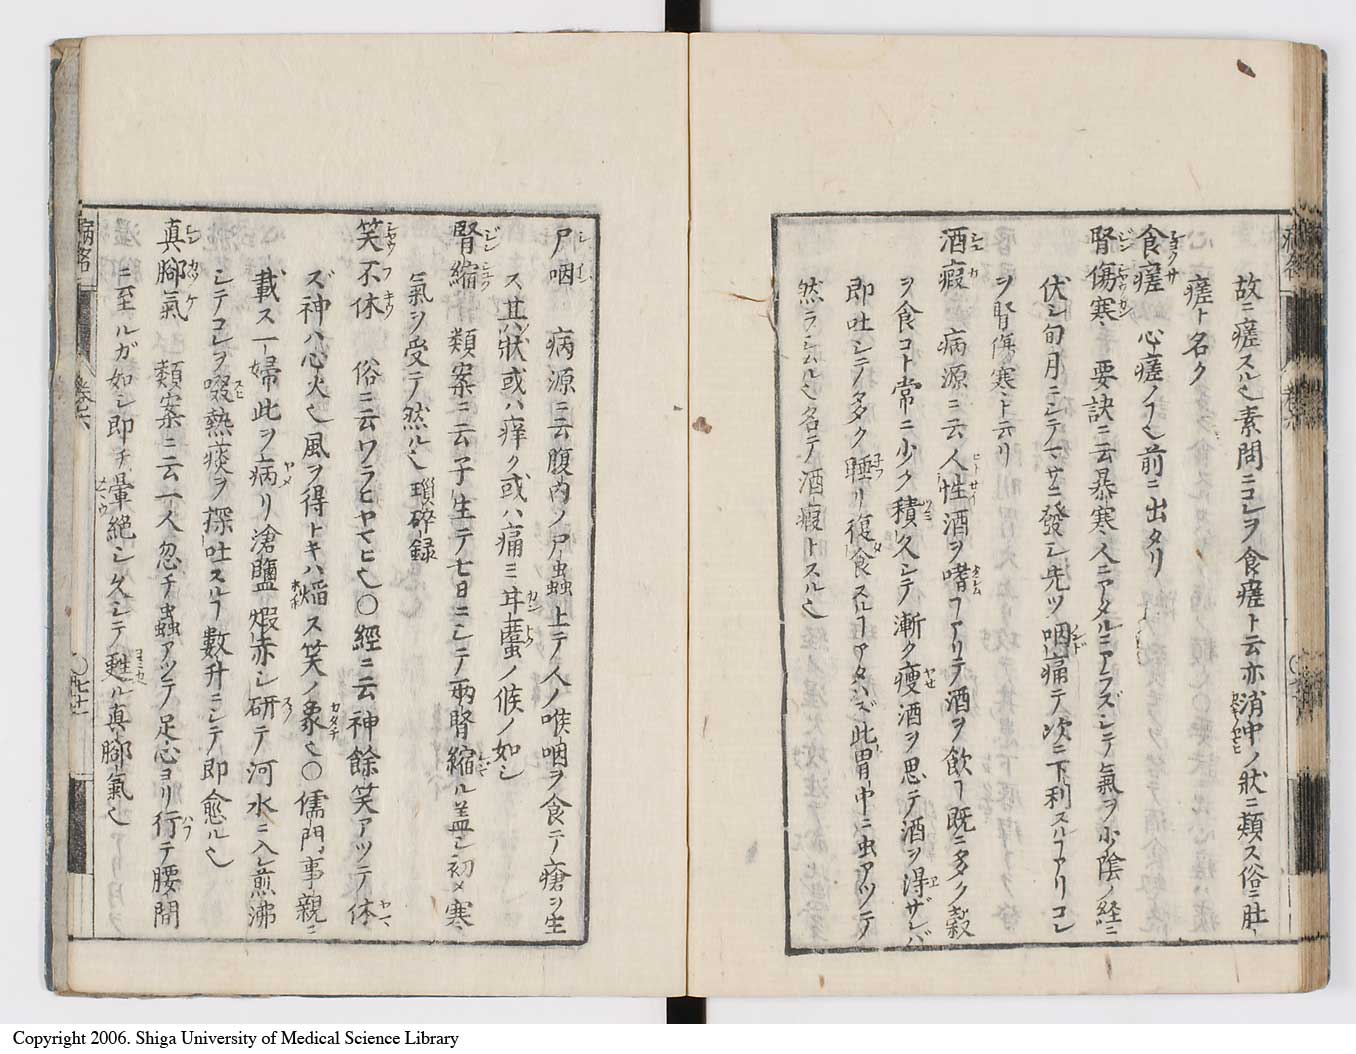 故ニ㾭スル也素問ニコレヲ食㾭ト云亦消中ノ狀ニ類ス俗ニ肚
㾭ト名ク
食㾭 心㾭ノフ也前ニ出タリ
腎傷寒 要訣ニ云暴寒人ニアタルニアラズシテ氣ヲ少陰ノ経ニ
伏シ旬月ニシテマサニ發シ先ツ咽痛テ次ニ下利スルヿアリコレ
ヲ腎傷寒ト云リ
酒瘕 病源ニ云人性酒ヲ嗜ヿアリテ酒ヲ飲ヿ既ニ多ク穀
ヲ食コト常ニ少ク積久シテ漸ク痩酒ヲ思テ酒ヲ得ザレバ
即吐シテ多ク睡リ復食スルヿアタハズ此胃中ニ虫アツテ
然ラシムル也名テ酒瘕トスル也
尸咽 病源ニ云腹内ノ尸蟲上テ人ノ喉咽ヲ食テ瘡ヲ生
ス其狀或ハ痒ク或ハ痛ミ䘌ノ候ノ如シ
腎縮 類案ニ云子生テ七日ニシテ兩腎縮ル盖シ初メ寒
氣ヲ受テ然ル也瑣碎録
笑不休 俗ニ云ワラヒヤマヒ也〇經ニ云神餘笑アツテ休
ズ神ハ心火也風ヲ得トキハ焰ス笑ノ象也〇儒門事親ニ
載ス一婦此ヲ病リ滄鹽煆赤シ研テ河水ニ入煎沸
シテコレヲ啜熱痰ヲ探吐スルヿ數升ニシテ即愈ル也
真脚氣 類案ニ云一人忽チ蟲アツテ足心ヨリ行テ腰間
ニ至ルガ如シ即チ暈絶シ久シテ甦ル真脚氣也
病名
巻六
〇七十一
Copyright 2006. Shiga University of Medical Science Library